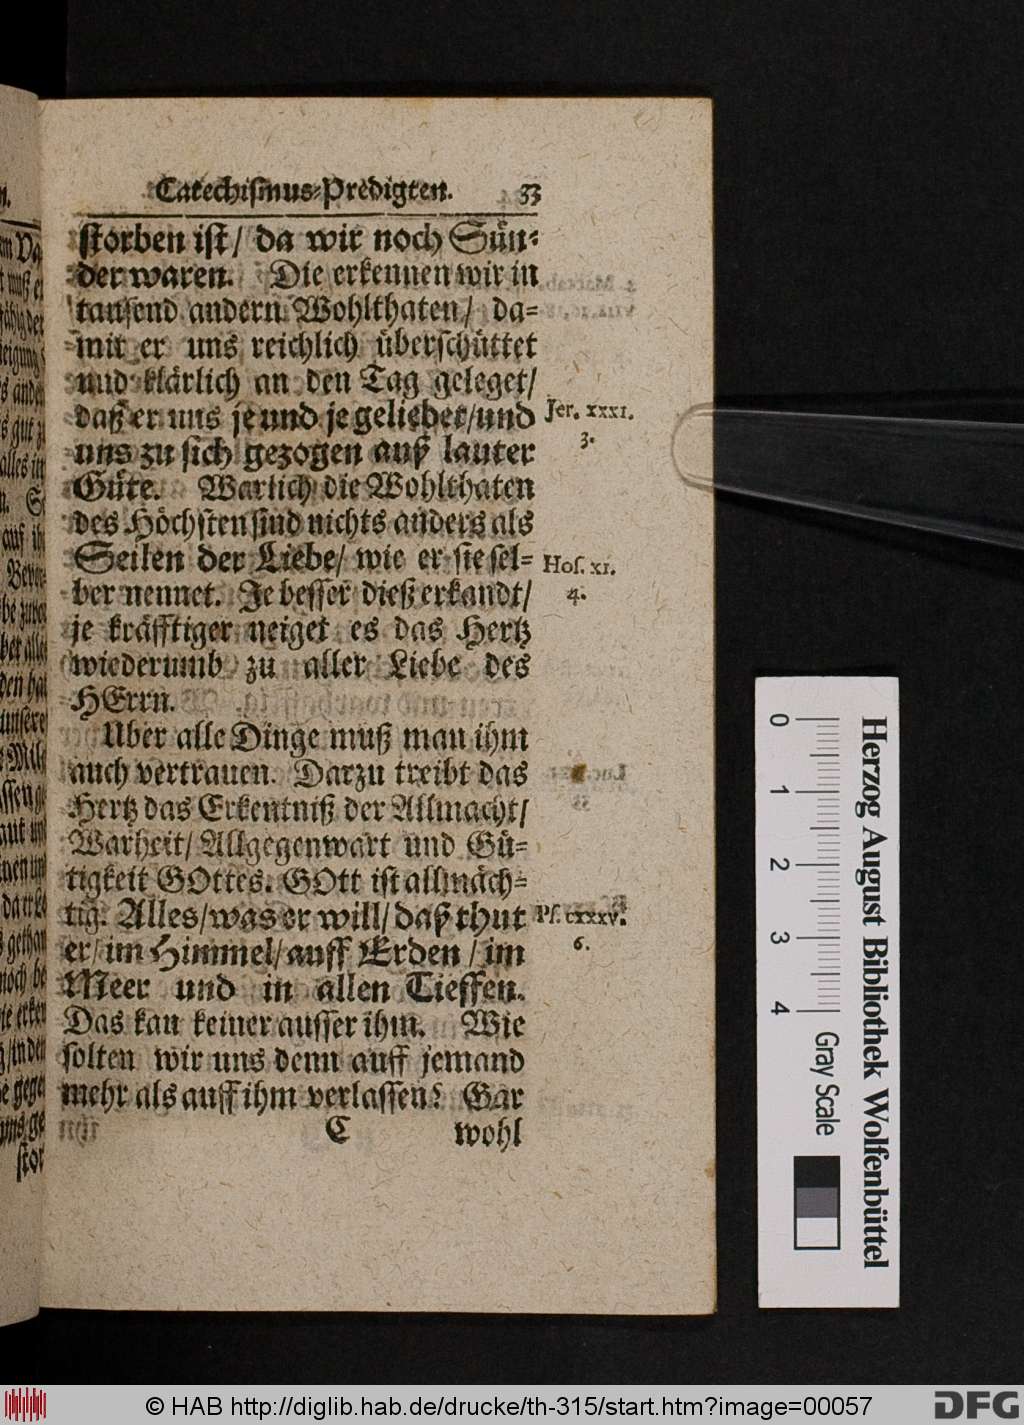 Catechismus-Predigten. 33
storben ist/ da wir noch Sün-
der waren. Die erkennen wir in
tausend andern Wohlthaten/ da-
mit er uns reichlich überschüttet
und klärlich an den Tag geleget/
daß er uns je und je geliebet/und
Jer. XXXI.
3.
uns zu sich gezogen auß lauter
Güte. Warlich die Wohlthaten
des Höchsten sind nichts anders als
Seilen der Liebe/ wie er sie sel-
Hos. XI.
4.
ber nennet. Je besser dieß erkandt/
je kräfftiger neiget es das Hertz
wiederumb zu aller Liebe des
HErrn.
Uber alle Dinge muß man ihm
auch vertrauen. Darzu treibt das
Hertz das Erkentniß der Allmacht/
Warheit/ Allgegenwart und Gü-
tigkeit GOttes. GOtt ist allmäch-
tig. Alles/was er will/ daß thut
Ps. CXXXV.
6.
er/ im Himmel/ auff Erden / im
Meer und in allen Tieffen.
Das kan keiner ausser ihm. Wie
solten wir uns denn auff jemand
mehr als auff ihm verlassen? Gar
C wohl
Herzog August Bibliothek Wolfenbüttel
0 1 2 3 4 Gray Scale
© HAB http://diglib.hab.de/drucke/th-315/start.htm?image=00057
DFG